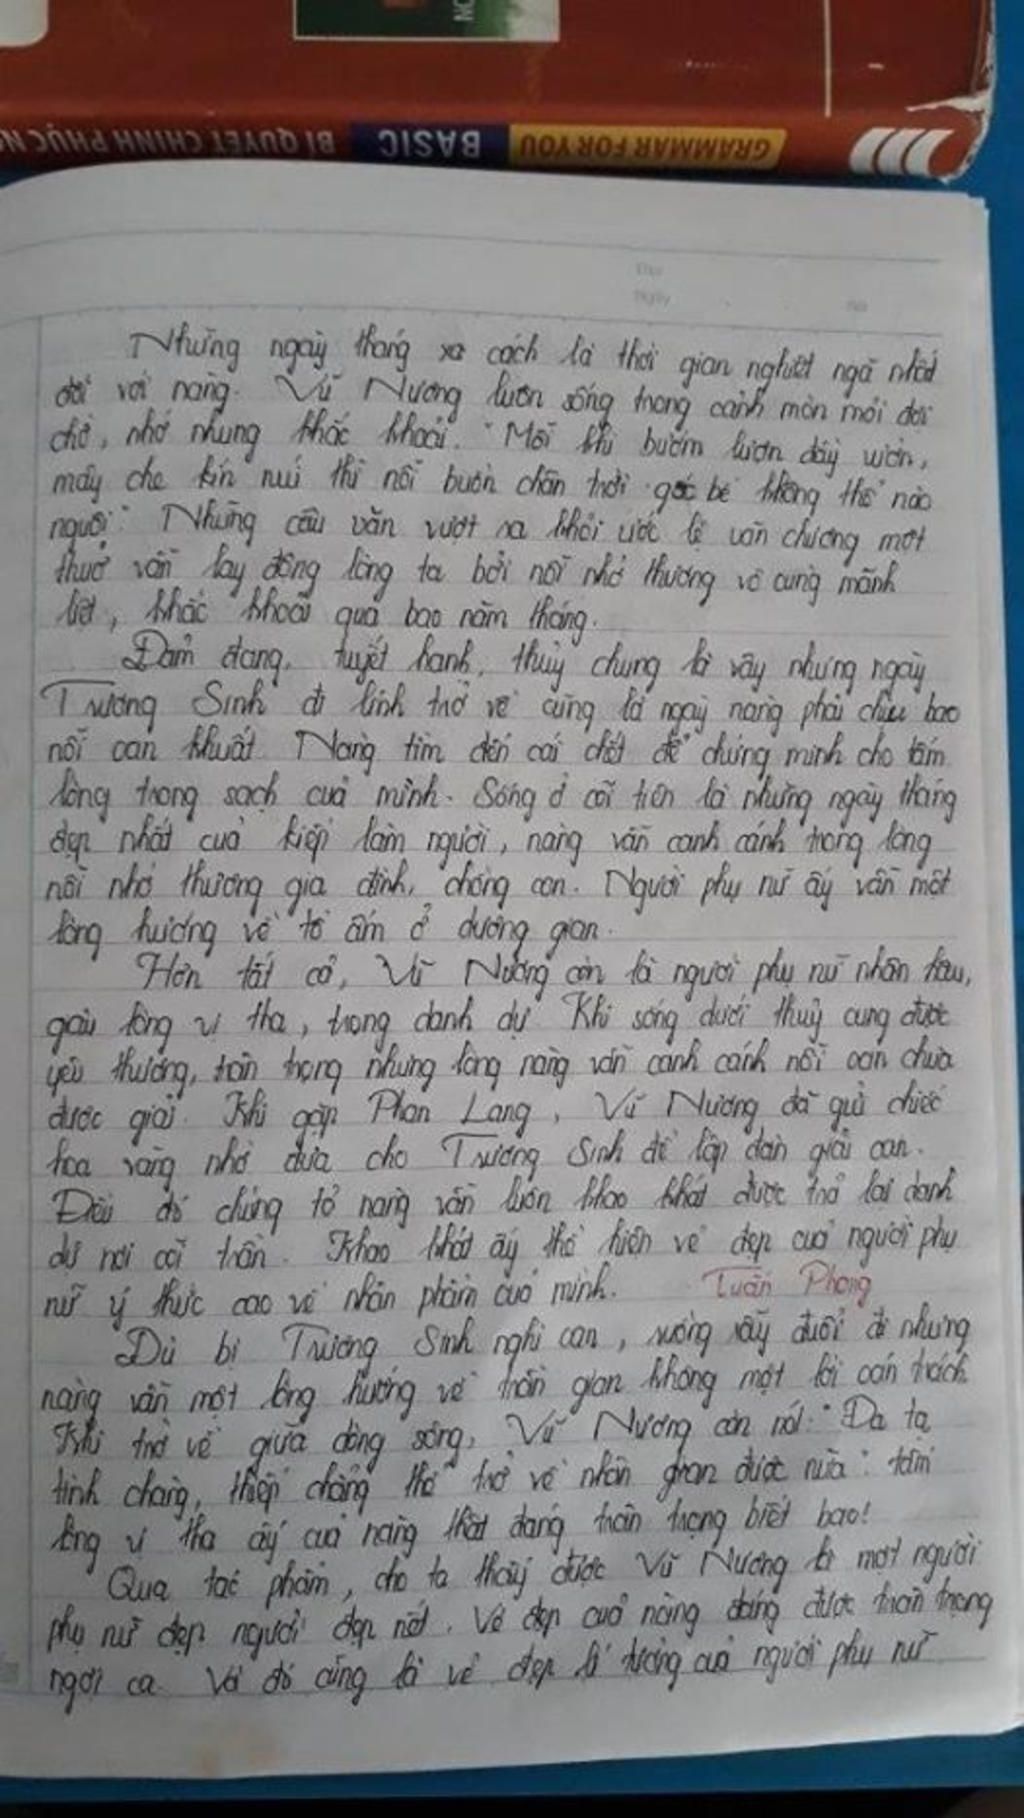 NG
GRAMMAR FOR YOU BASIC BÍ QUYẾT CHINH PHỤC N
Thứ
Ngày
Những ngày tháng xa cách là thời gian nghiệt ngã nhất
đối với nàng. Vũ Nương luôn sống trong cảnh mòn mỏi đợi
chờ, nhớ nhung khắc khoải. "Mỗi khi bướm lượn đầy vườn,
mây che kín núi thì nỗi buồn chân trời góc bể không thể nào
nguôi". Những câu văn vượt ra khỏi ước lệ văn chương một
thuở vẫn lay động lòng ta bởi nỗi nhớ thương vô cùng mãnh
liệt, khắc khoải qua bao năm tháng.
Đảm đang, tuyết hạnh, thuỷ chung là vậy nhưng ngày
Trương Sinh đi lính trở về cũng là ngày nàng phải chịu bao
nỗi oan khuất. Nàng tìm đến cái chết để chứng minh cho tấm
lòng trong sạch của mình. Sống ở cõi tiên là những ngày tháng
đẹp nhất của kiếp làm người, nàng vẫn canh cánh trong lòng
nỗi nhớ thương gia đình, chồng con. Người phụ nữ ấy vẫn một
lòng hướng về tổ ấm ở dương gian.
Hơn tất cả, Vũ Nương còn là người phụ nữ nhân hậu,
giàu lòng vị tha, trọng danh dự. Khi sống dưới thuỷ cung được
yêu thương, trân trọng nhưng lòng nàng vẫn canh cánh nỗi oan chưa
được giải. Khi gặp Phan Lang, Vũ Nương đã gửi chiếc
hoa vàng nhờ đưa cho Trương Sinh để lập đàn giải oan.
Điều đó chứng tỏ nàng vẫn luôn khao khát được trả lại danh
dự nơi cõi trần. Khao khát ấy thể hiện vẻ đẹp của người phụ
nữ ý thức cao về nhân phẩm của mình. Tuấn Phong
Dù bị Trương Sinh nghi oan, ruồng rẫy đuổi đi nhưng
nàng vẫn một lòng hướng về trần gian không một lời oán trách.
Khi trở về giữa dòng sông, Vũ Nương còn nói: "Đa tạ
tình chàng, thiếp chẳng thể trở về nhân gian được nữa": tấm
lòng vị tha ấy của nàng thật đáng trân trọng biết bao!
Qua tác phẩm, cho ta thấy được Vũ Nương là một người
phụ nữ đẹp người đẹp nết. Vẻ đẹp của nàng đáng được trân trọng
ngợi ca. Và đó cũng là vẻ đẹp lí tưởng của người phụ nữ